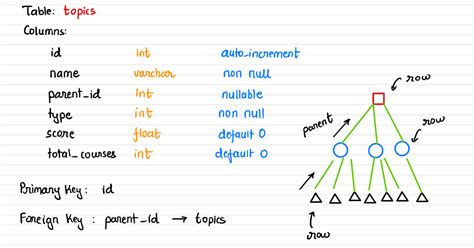 Table: topics
Columns:
id int auto_increment
name varchar non null
parent_id int nullable
type int non null
score float default 0
total_courses int default 0
Primary Key: id
Foreign Key : parent_id → topics
row
row
parent
row